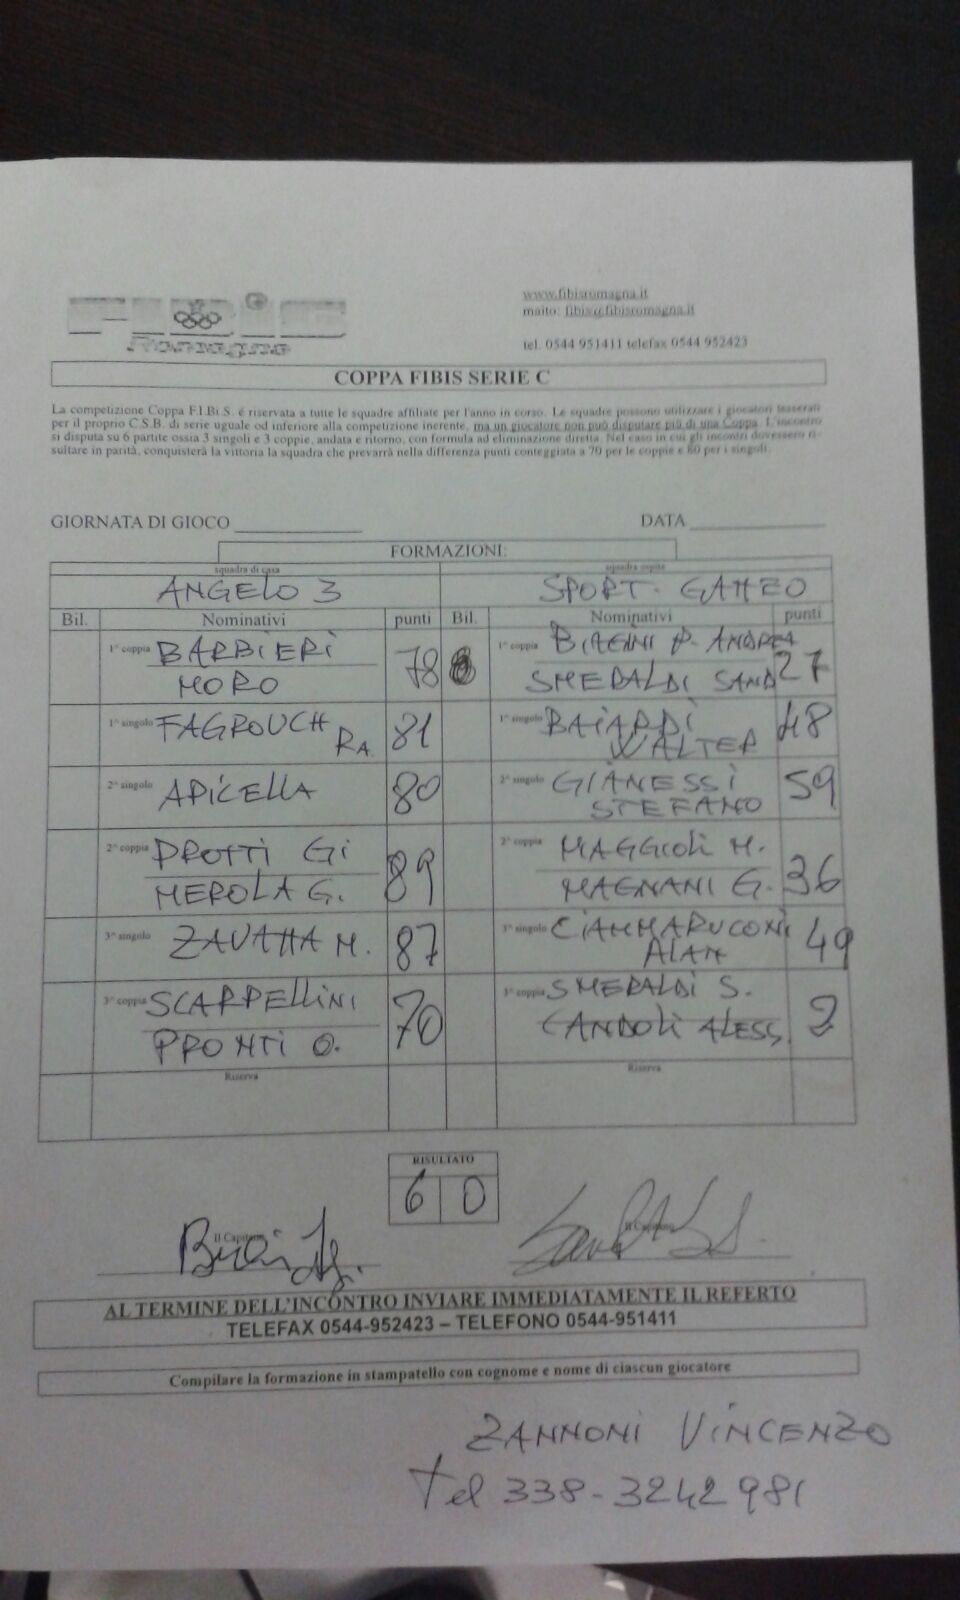 FIBIS
Romagna
www.fibisromagna.it
maito: fibis@fibisromagna.it
tel. 0544 951411 telefax 0544 952423
COPPA FIBIS SERIE C
La competizione Coppa F.I.Bi S. é riservata a tutte le squadre affiliate per l'anno in corso. Le squadre possono utilizzare i giocatori tesserati
per il proprio C.S.B. di serie uguale od inferiore alla competizione inerente, ma un giocatore non può disputare più di una Coppa. L'incontro
si disputa su 6 partite ossia 3 singoli e 3 coppie, andata e ritorno, con formula ad eliminazione diretta. Nel caso in cui gli incontri dovessero ri-
sultare in parità, conquisterà la vittoria la squadra che prevarrà nella differenza punti conteggiata a 70 per le coppie e 80 per i singoli.
GIORNATA DI GIOCO DATA
FORMAZIONI:
squadra di casa squadra ospite
ANGELO 3 SPORT. GATTEO
Bil. Nominativi punti Bil. Nominativi punti
1^ coppia BARBIERI 78 1^ coppia BIAGINI P. ANDREA 27
MORO SMERALDI SAND
1^ singolo FAGROUCH RA. 81 1^ singolo BAIARDI WALTER 48
2^ singolo APICELLA 80 2^ singolo GIANESSI STEFANO 59
2^ coppia PROTTI Gi 89 2^ coppia MAGGIOLI M. 36
MEROLA G. MAGNANI G.
3^ singolo ZAVATTA M. 87 3^ singolo CIAMMARUCONI ALAN 49
3^ coppia SCARPELLINI 70 3^ coppia SMERALDI S. 2
PRONTI O. CANDOLI ALESS.
Riserva Riserva
RISULTATO
6 0
Il Capitano Il Capitano
AL TERMINE DELL'INCONTRO INVIARE IMMEDIATAMENTE IL REFERTO
TELEFAX 0544-952423 – TELEFONO 0544-951411
Compilare la formazione in stampatello con cognome e nome di ciascun giocatore
ZANNONI VINCENZO
Tel 338-3242981